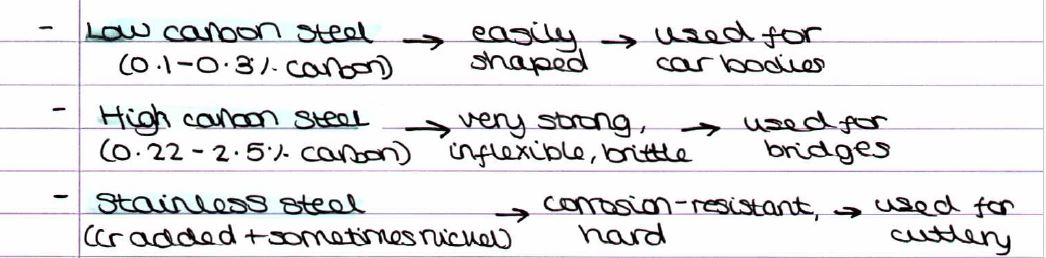 - Low carbon steel → easily → used for
(0.1-0.3% carbon) shaped car bodies
- High carbon steel → very strong, → used for
(0.22-2.5% carbon) inflexible, brittle bridges
- Stainless steel → corrosion-resistant, → used for
(Cr added + sometimes nickel) hard cutlery